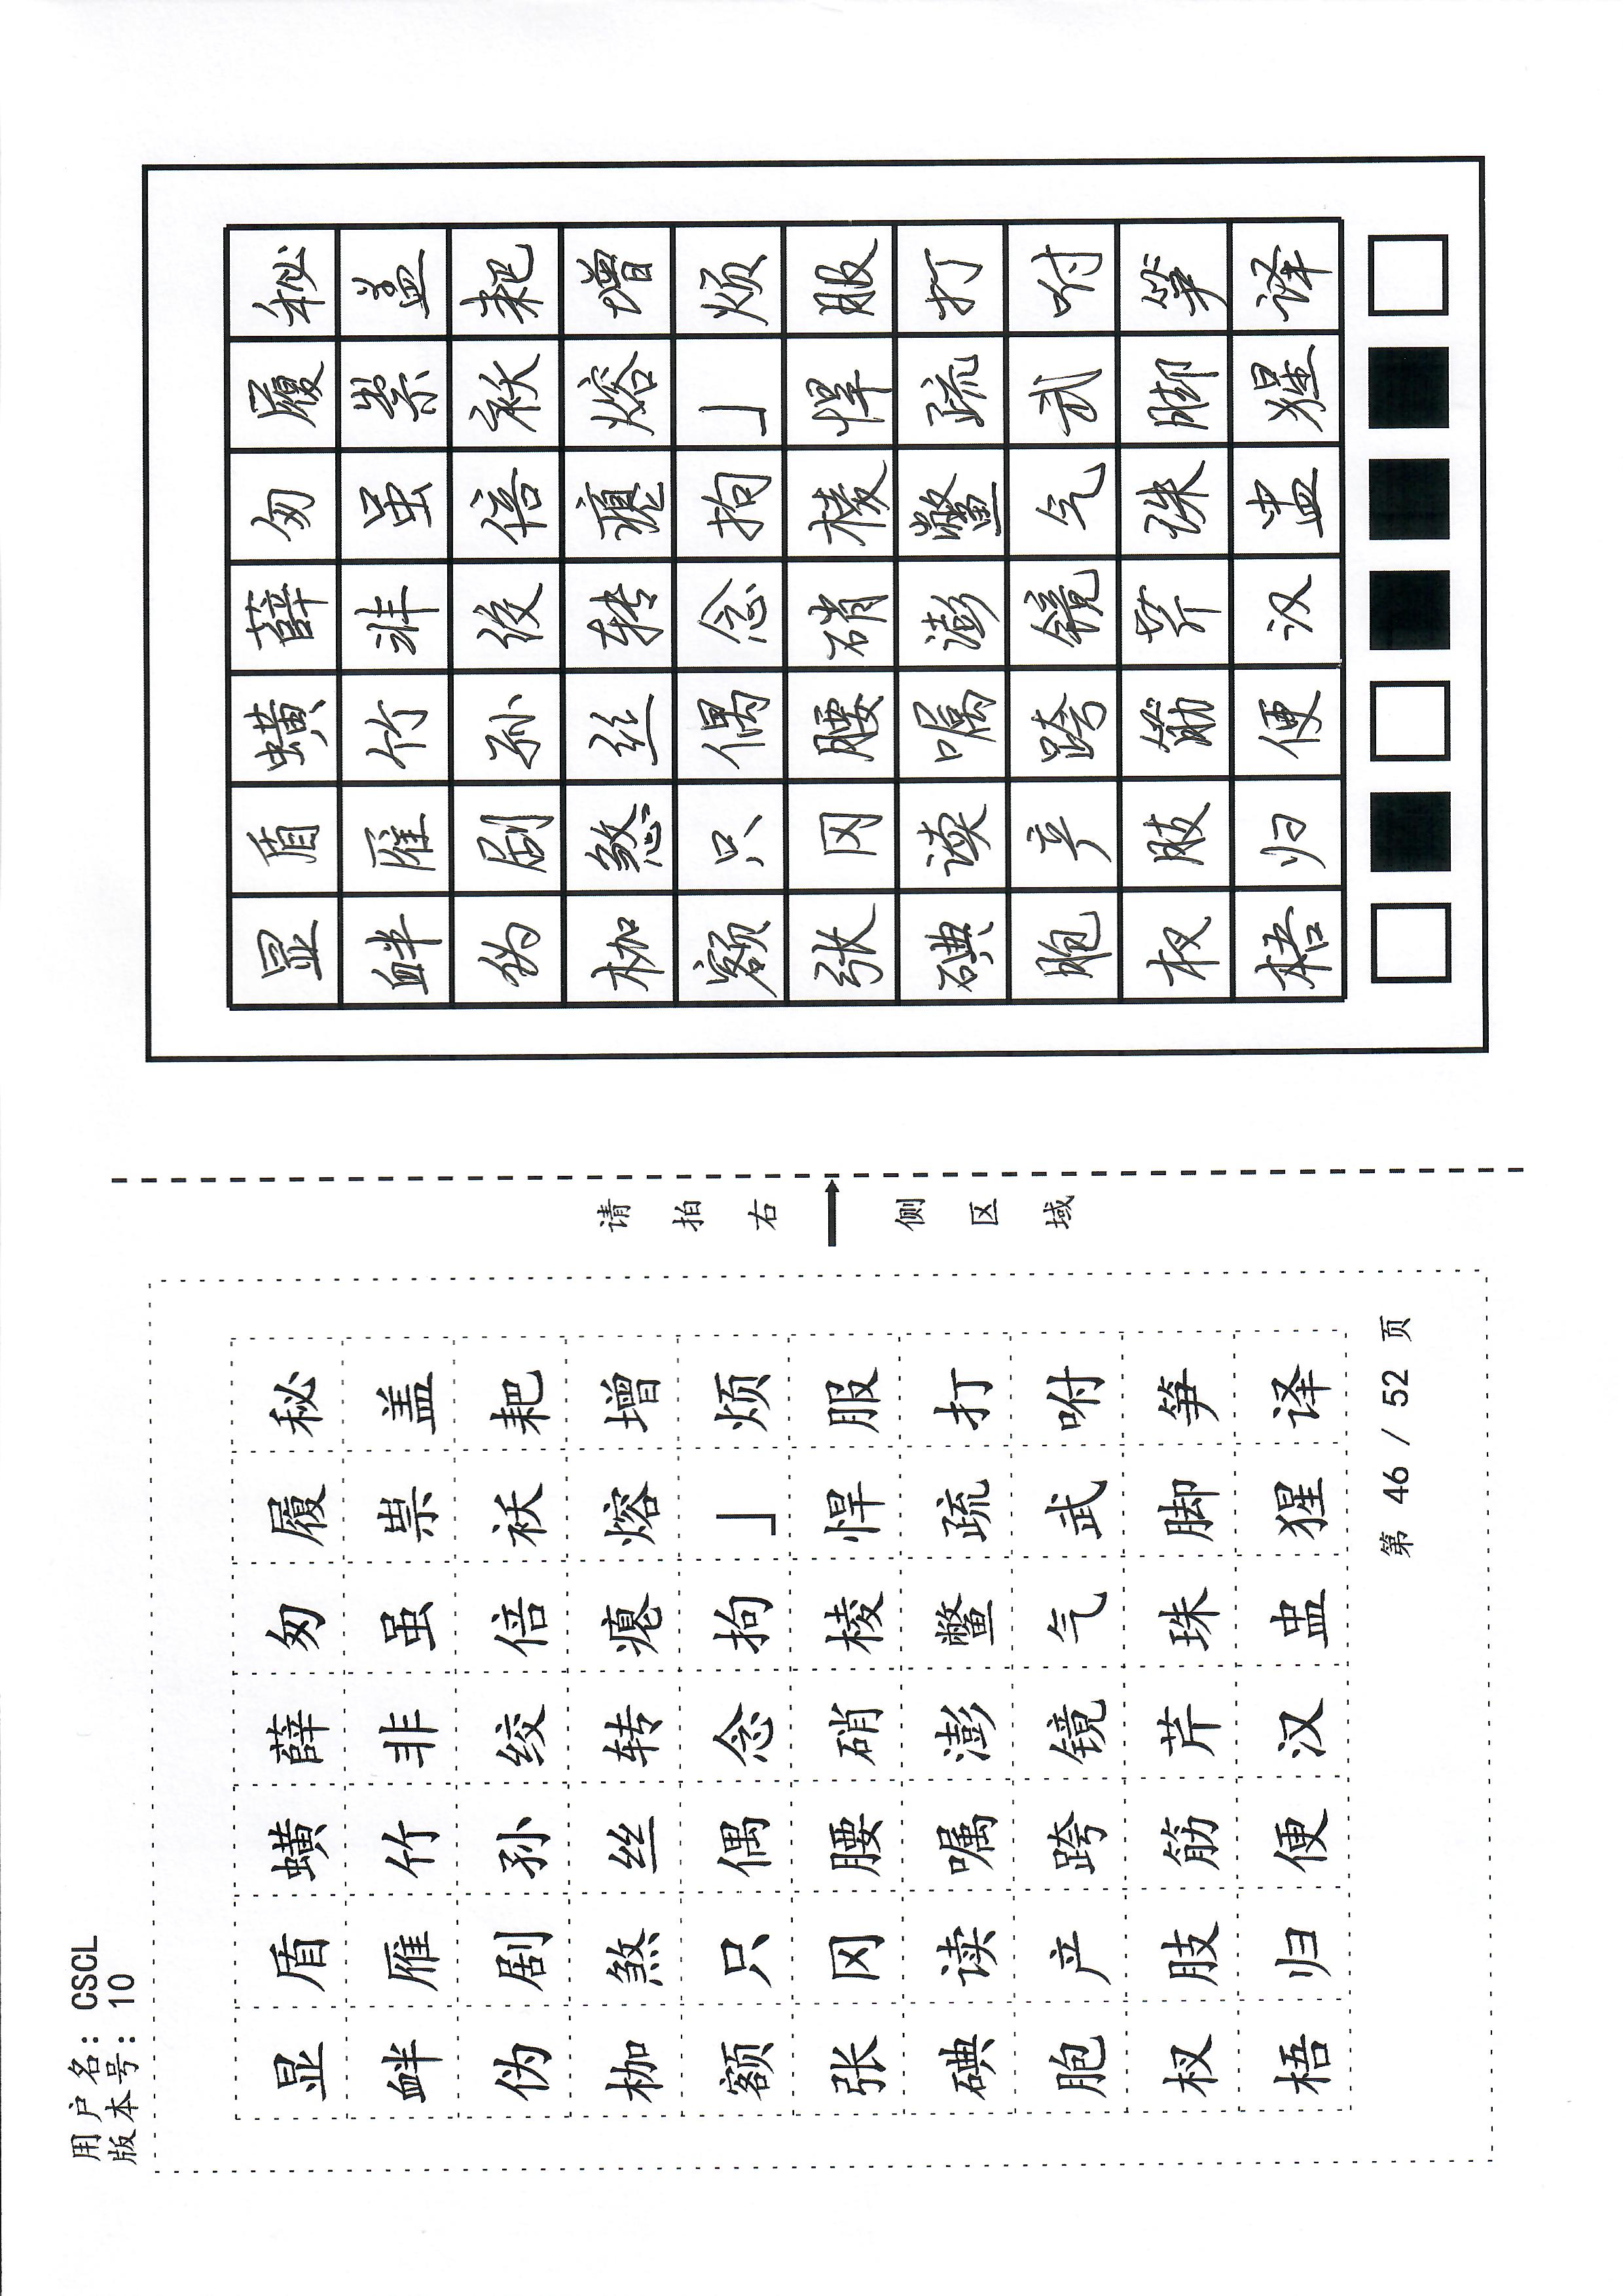 用户名: CSCL
版本号: 10
显 盾 蟥 薛 匆 履 秘
衅 雁 竹 非 虽 祟 盖
伪 剧 孙 绞 倍 袄 耙
枷 煞 丝 转 瘪 熔 增
额 只 偶 念 拘 」 烦
张 冈 腰 硝 棱 悍 服
碘 读 嘱 澎 鳖 疏 打
胞 产 跨 镜 气 武 咐
杈 肢 筋 芹 珠 脚 笋
梧 归 便 汉 盅 猩 译
第 46 / 52 页
请拍右侧区域
显 盾 蟥 薛 匆 履 秘
衅 雁 竹 非 虽 祟 盖
伪 剧 孙 绞 倍 袄 耙
枷 煞 丝 转 瘪 熔 增
额 只 偶 念 拘 」 烦
张 冈 腰 硝 棱 悍 服
碘 读 嘱 澎 鳖 疏 打
胞 产 跨 镜 气 武 咐
杈 肢 筋 芹 珠 脚 笋
梧 归 便 汉 盅 猩 译